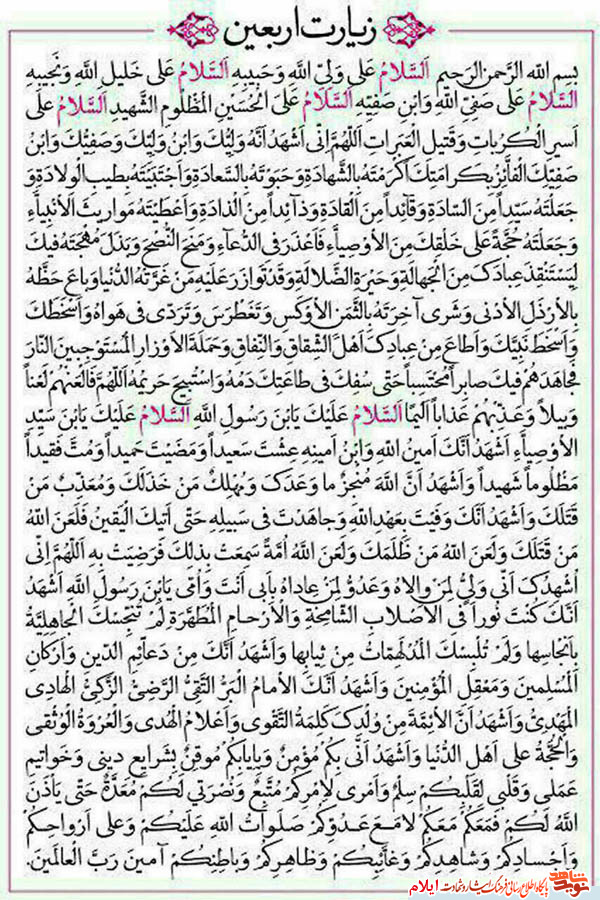 زیارت اربعین
بسم الله الرَّحمنِ الرَّحیمِ اَلسَّلامُ عَلی وَلِیِّ اللَّهِ وَحَبیبِهِ اَلسَّلامُ عَلی خَلیلِ اللَّهِ وَنَجیبِهِ
اَلسَّلامُ عَلی صَفِیِّ اللَّهِ وَابْنِ صَفِیِّهِ اَلسَّلامُ عَلیَ الْحُسَیْنِ الْمَظْلُومِ الشَّهیدِ اَلسَّلامُ علی
اَسیرِ الْکُرُباتِ وَقَتیلِ الْعَبَراتِ اَللّهُمَّ اِنّی اَشْهَدُ اَنَّهُ وَلِیُّکَ وَابْنُ وَلِیِّکَ وَصَفِیُّکَ وَابْنُ
صَفِیِّکَ الْفاَّئِزُ بِکَرامَتِکَ اَکْرَمْتَهُ بِالشَّهادَةِ وَحَبَوْتَهُ بِالسَّعادَةِ وَاَجْتَبَیْتَهُ بِطیبِ الْوِلادَةِ وَ
جَعَلْتَهُ سَیِّداً مِنَ السّادَةِ وَقآئِداً مِنَ الْقادَةِ وَذآئِداً مِنَ الْذادَةِ وَاَعْطَیْتَهُ مَواریثَ الاَنْبِیآءِ
وَجَعَلْتَهُ حُجَّةً عَلی خَلْقِکَ مِنَ الاَوْصِیآءِ فَاَعْذَرَ فیِ الدُّعآءِ وَمَنَحَ النُّصْحَ وَبَذَلَ مُهْجَتَهُ فیکَ
لِیَسْتَنْقِذَ عِبادَکَ مِنَ الْجَهالَةِ وَحَیْرَةِ الضَّلالَةِ وَقَدْ تَوازَرَ عَلَیْهِ مَنْ غَرَّتْهُ الدُّنْیا وَباعَ حَظَّهُ
بِالاَرْذَلِ الاَدْنی وَشَری آخِرَتَهُ بِالثَّمَنِ الاَوْکَسِ وَتَغَطْرَسَ وَتَرَدّی فی هَواهُ وَاَسْخَطَکَ
وَاَسْخَطَ نَبِیَّکَ وَاَطاعَ مِنْ عِبادِکَ اَهْلَ الشِّقاقِ وَالنِّفاقِ وَحَمَلَةَ الاَوْزارِ الْمُسْتَوْجِبینَ النّارَ
فَجاهَدَهُمْ فیکَ صابِراً مُحْتَسِباً حَتّی سُفِکَ فی طاعَتِکَ دَمُهُ وَاسْتُبیحَ حَریمُهُ اَللّهُمَّ فَالْعَنْهُمْ لَعْناً
وَبیلاً وَعَذِّبْهُمْ عَذاباً اَلیماً اَلسَّلامُ عَلَیْکَ یَابْنَ رَسُولِ اللَّهِ اَلسَّلامُ عَلَیْکَ یَابْنَ سَیِّدِ
الاَوْصِیآءِ اَشْهَدُ اَنَّکَ اَمینُ اللَّهِ وَابْنُ اَمینِهِ عِشْتَ سَعیداً وَمَضَیْتَ حَمیداً وَمُتَّ فَقیداً
مَظْلُوماً شَهیداً وَاَشْهَدُ اَنَّ اللَّهَ مُنْجِزٌ ما وَعَدَکَ وَمُهْلِکٌ مَنْ خَذَلَکَ وَمُعَذِّبٌ مَنْ
قَتَلَکَ وَاَشْهَدُ اَنَّکَ وَفَیْتَ بِعَهْدِ اللَّهِ وَجاهَدْتَ فی سَبیلِهِ حَتّی اَتیکَ الْیَقینُ فَلَعَنَ اللَّهُ
مَنْ قَتَلَکَ وَلَعَنَ اللَّهُ مَنْ ظَلَمَکَ وَلَعَنَ اللَّهُ اُمَّةً سَمِعَتْ بِذلِکَ فَرَضِیَتْ بِهِ اَللّهُمَّ اِنّی
اُشْهِدُکَ اَنّی وَلِیٌّ لِمَنْ والاهُ وَعَدُوٌّ لِمَنْ عاداهُ بِاَبی اَنْتَ وَاُمّی یَابْنَ رَسُولِ اللَّهِ اَشْهَدُ
اَنَّکَ کُنْتَ نُوراً فیِ الاَصْلابِ الشّامِخَةِ وَالاَرْحامِ الْمُطَهَّرَةِ لَمْ تُنَجِّسْکَ الْجاهِلِیَّةُ
بِاَنْجاسِها وَلَمْ تُلْبِسْکَ الْمُدْلَهِمّاتُ مِنْ ثِیابِها وَاَشْهَدُ اَنَّکَ مِنْ دَعآئِمِ الدّینِ وَاَرْکانِ
الْمُسْلِمینَ وَمَعْقِلِ الْمُؤْمِنینَ وَاَشْهَدُ اَنَّکَ الاِمامُ الْبَرُّ التَّقِیُّ الرَّضِیُّ الزَّکِیُّ الْهادِی
الْمَهْدِیُّ وَاَشْهَدُ اَنَّ الاَئِمَّةَ مِنْ وُلْدِکَ کَلِمَةُ التَّقْوی وَاَعْلامُ الْهُدی وَالْعُرْوَةُ الْوُثْقی
وَالْحُجَّةُ علی اَهْلِ الدُّنْیا وَاَشْهَدُ اَنّی بِکُمْ مُؤْمِنٌ وَبِاِیابِکُمْ مُوقِنٌ بِشَرایِعِ دینی وَخَواتیمِ
عَمَلی وَقَلْبی لِقَلْبِکُمْ سِلْمٌ وَاَمْری لاَِمْرِکُمْ مُتَّبِعٌ وَنُصْرَتی لَکُمْ مُعَدَّةٌ حَتّی یَاْذَنَ
اللَّهُ لَکُمْ فَمَعَکُمْ مَعَکُمْ لامَعَ عَدُوِّکُمْ صَلَواتُ اللَّهِ عَلَیْکُمْ وَعلی اَرْواحِکُمْ
وَاَجْسادِکُمْ وَشاهِدِکُمْ وَغآئِبِکُمْ وَظاهِرِکُمْ وَباطِنِکُمْ آمینَ رَبَّ الْعالَمینَ.
نوید شاهد پایگاه اطلاع رسانی فرهنگ ایثار و شهادت ایلام